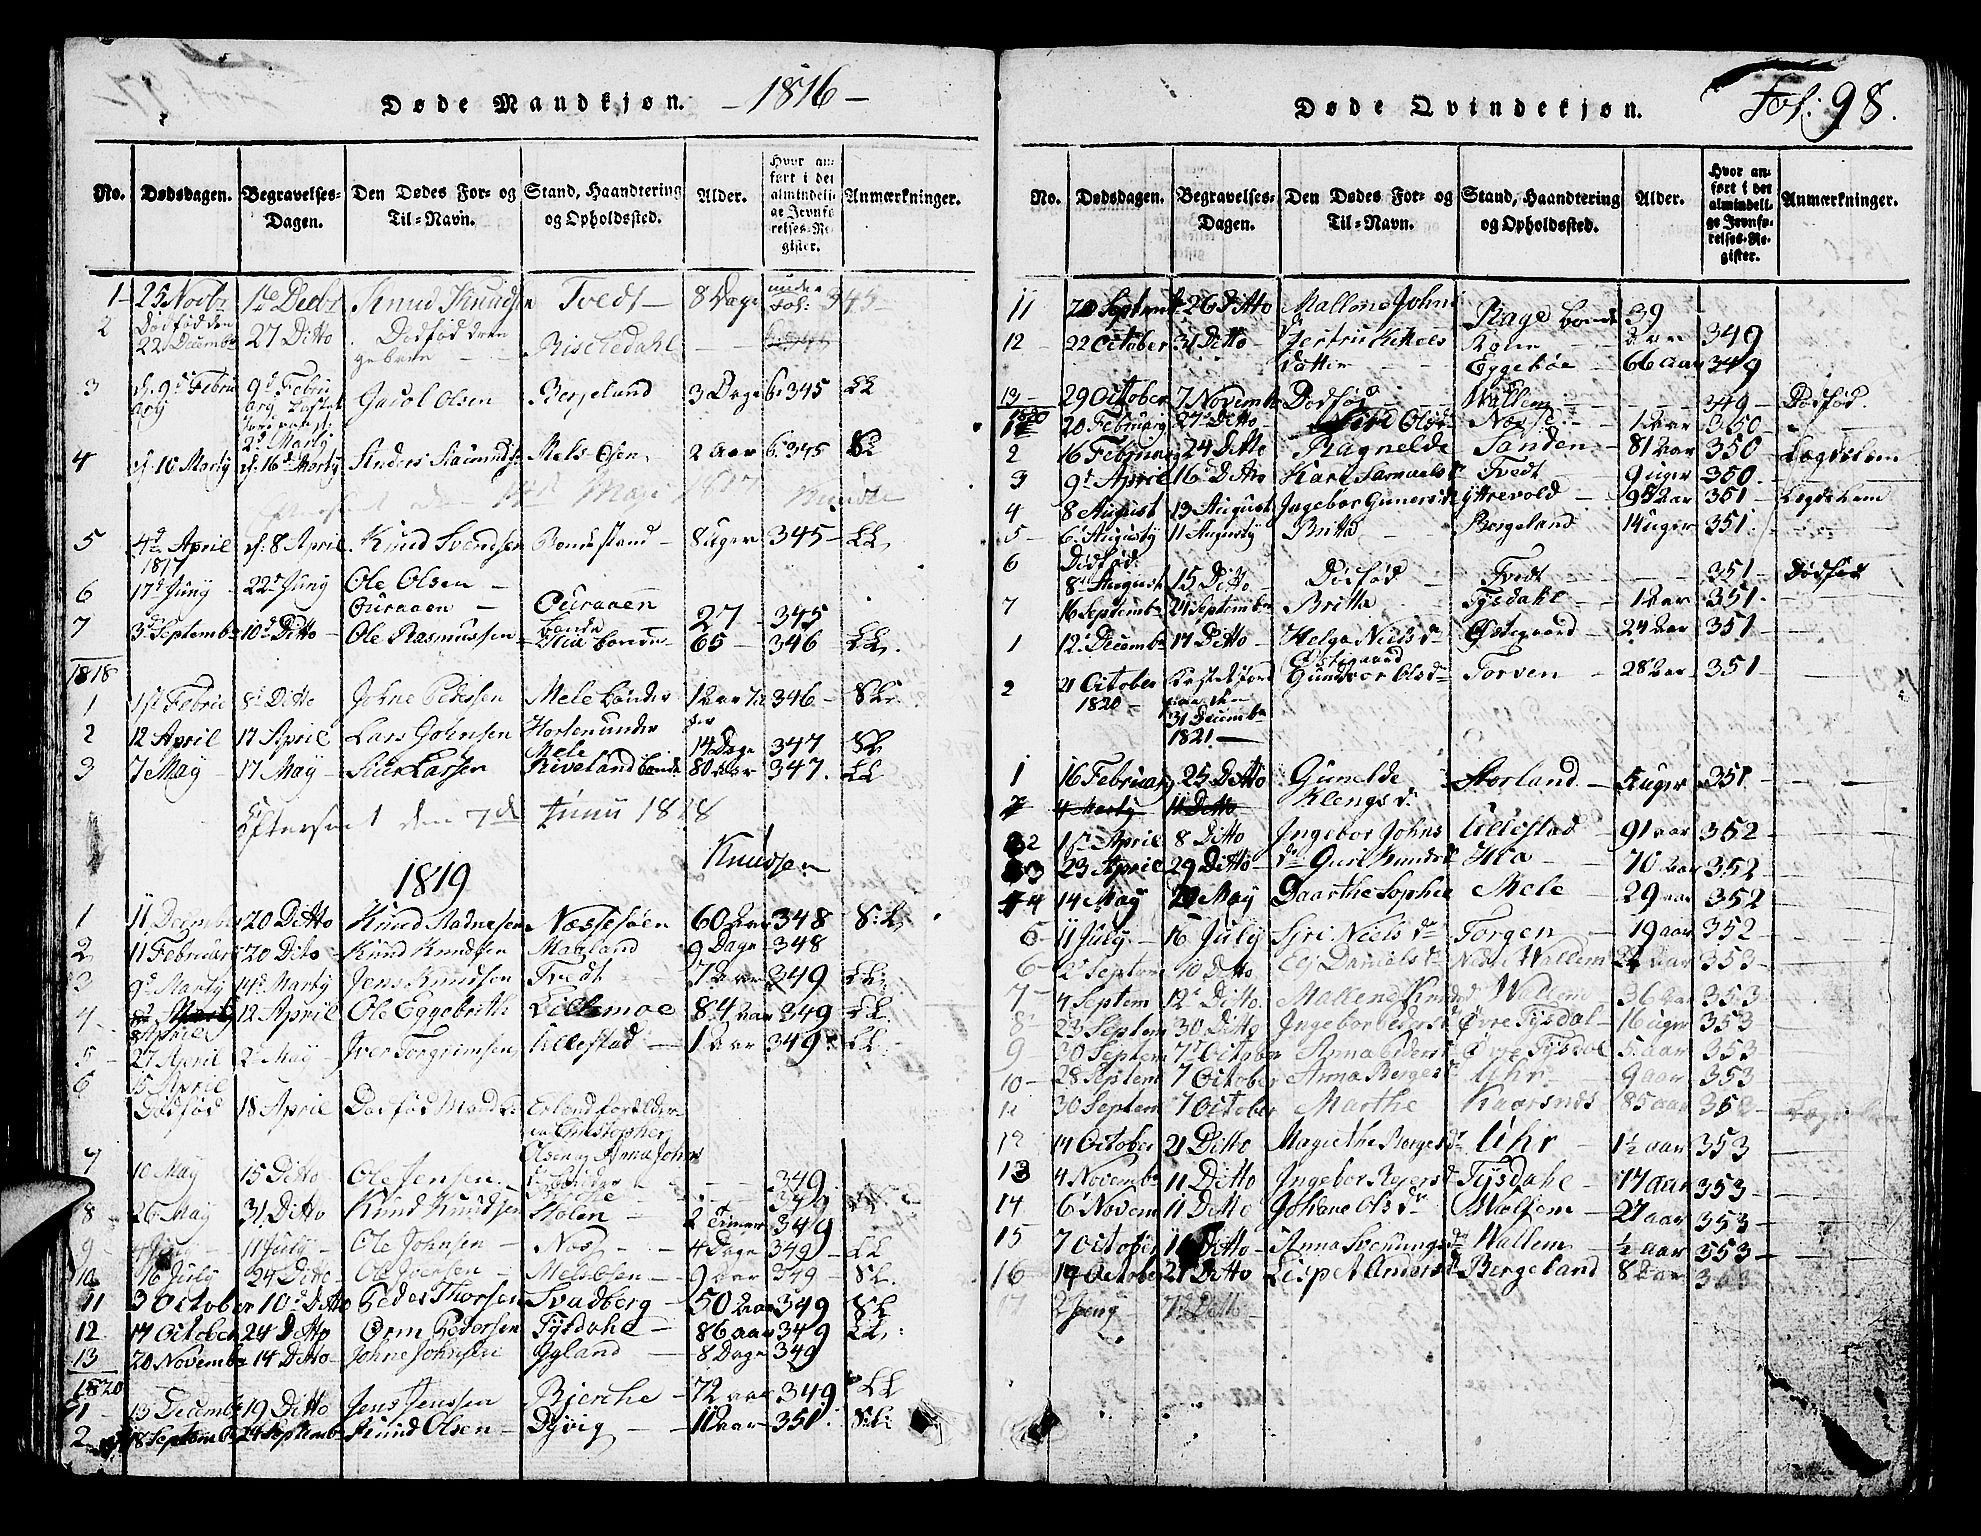 Døde Mandkjøn. — 1816 —
No. Dødsdagen. Begravelses-Dagen. Den Dødes For- og Til-Navn. Stand, Haandtering og Opholdssted. Alder. Hvor anført i det almindelige Jevnførelses-Register. Anmærkninger.
1 25 Novbr 1te Decbr Knud Knudsen Tvedt 8 Dage under Fol: 345
2 Dødfød den 22 Decembr 27 Ditto Dødfød drengebarn Riskedahl
3 d: 9d February 9d Februar Jacob Olsen Bergeland 3 Dage 345 LL
4 d. 10 Marty d. 16d Marty Anders Mels Osen 2 Aar 345 SL
5 4d April d: 8 April Knud Svendsen Bondestand 8 uger 345 LL
1817
6 17d Juny 22d Juny Ole Olsen
Ouraaen Ouraaen 27 345
7 3d Septembr 10d Ditto Ole Rasmussen Hia bonde 65 346 LL
1818
1 1st Febru 8d Ditto Johne Mele bonde 1 aar 346 SL
2 12 April 17 April Lars Gøhnsen under Mele 14 Dage 347 SL
3 7 May 17 May Larsen Riveland bonde 80 aar 347 LL
Efterseet den 7de Junii 1818
Knudsen
1819
1 11 Decembr 20 Ditto Knud Næssesøen 60 Aar 348 S:L
2 11 February 20 Dito Knud Knudsen Maaland 9 Dage 348
3 9d Marty 14d Marty Jens Knudsen Tvedt 7 Aar 349 LL
4 8 April 12 April Ole Eggebrith Lillemoe 84 aar 349 LL
5 27 April 2d May Iver Torgrimsen Ullestad 1 Aar 349 LL
6 15 April
Dødfød 18 April Dødfød Erland forældre Christopher Olsen og Anna Johns
7 10 May 15 Ditto Ole Jensen 349
8 26 May 31 Ditto Knud Knudsen Stolen 2 Timer 349
9 4 July 11 July Ole Johnsen Næs 4 Dage 349 LL
10 16 July 24 Ditto Ole Iversen Mels Osen 9 Aar 349 SL
11 3 October 10d Ditto Peder Thorsen Svadberg 50 Aar 349 SL
12 17 October 24 Ditto Orm Pedersen Tysdahl 86 aar 349 LL
13 20 Novembr 14 Ditto Johne Johnsen Jgland 8 Dage 349
1820
1 13 Decembr 19 Ditto Jens Jenssen Bjerche 72 aar 349 LL
2 18 Septembr 24 Septembr Knud Olsen Dyvig 11 aar 351 S:L
Døde Qvindekjøn. Fol: 98.
No. Dødsdagen. Begravelses-Dagen. Den Dødes For- og Til-Navn. Stand, Haandtering og Opholdssted. Alder. Hvor anført i det almindelige Jevnførelses-Register. Anmærkninger.
11 20 Septembr 26 Ditto Mallene Johns Rage bonde 39
12 22 October 31 Ditto Jertru Kittels datter Eggebøe 66 aar 349
13 29 October 7 Novembr Dødfød Wallem 349 Dødfød.
1820
1 20 February 27d Ditto Siri Olsd. Næsse 1 Aar 350
2 16 February 24 Ditto Ragnelde Sanden 81 Aar 350 Lægdslem
3 9d April 16 Ditto Kari Samuelsd. Tvedt 9 uger 350
4 8 August 13 August Ingebor Gunersd. Yttrevold 95 Aar 351 Legdslem
5 6 Augusty 11 Augusty Britta Bergeland 14 uger 351
6 Dødfød
8d August 15 Ditto Dødfød Tvedt 351 Dødfød
7 16 Septembr 24 Septembr Britta Tysdahl 1 Aar 351
1 12 Decembr 17 Ditto Helga Niels dr Østegaard 24 Aar 351
2 21 October 1820 31 Decembr 1821 Gundvor Olsdr Torven 28 Aar 351
1 16 February 25 Ditto Gunelde Klengs dr Aorland 5 uger 351
2 4 Marty 11 Ditto
2 1st April 8 Ditto Ingebor Johns dr Ullestad 91 aar 352
3 23 April 29 Ditto Guri Knudsd Hia 70 Aar 352
4 14 May May Daarthe Sophie Mele 29 aar 352
5 11 July 16 July Siri Niels dr Torgen 19 aar 352
6 2d Septem 10 Ditto Elj Daniels dr Wallem Aar 353
7 4 Septem 12d Ditto Mallene Wallem 36 Aar 353
8 23 Septem 30 Ditto Ingebor Peders dr Øvre Tysdal 16 uger 353
9 30 Septem 7d October Anna Peders Øvre Tysdal 5 aar 353
10 28 Septem 7 October Anna Berges dr Uhr 9 aar 353
11 30 Septem 7 October Marthe Kaarsnes 85 aar 353 Lægdslem
12 14 October 21 Ditto Magrethe Borges dr Uhr 1½ aar 353
13 4 Novembr 11 Ditto Ingebor Reiers d Tysdahl 17 aar 353
14 6 Novem 11 Ditto Johane Ols dr 27 aar 353
15 7 October Ditto Anna Svenungs dr Wallem ½ aar 353
16 October 21 Ditto Lispet Anders dr Bergeland 8 Aar 353
17 Ditto